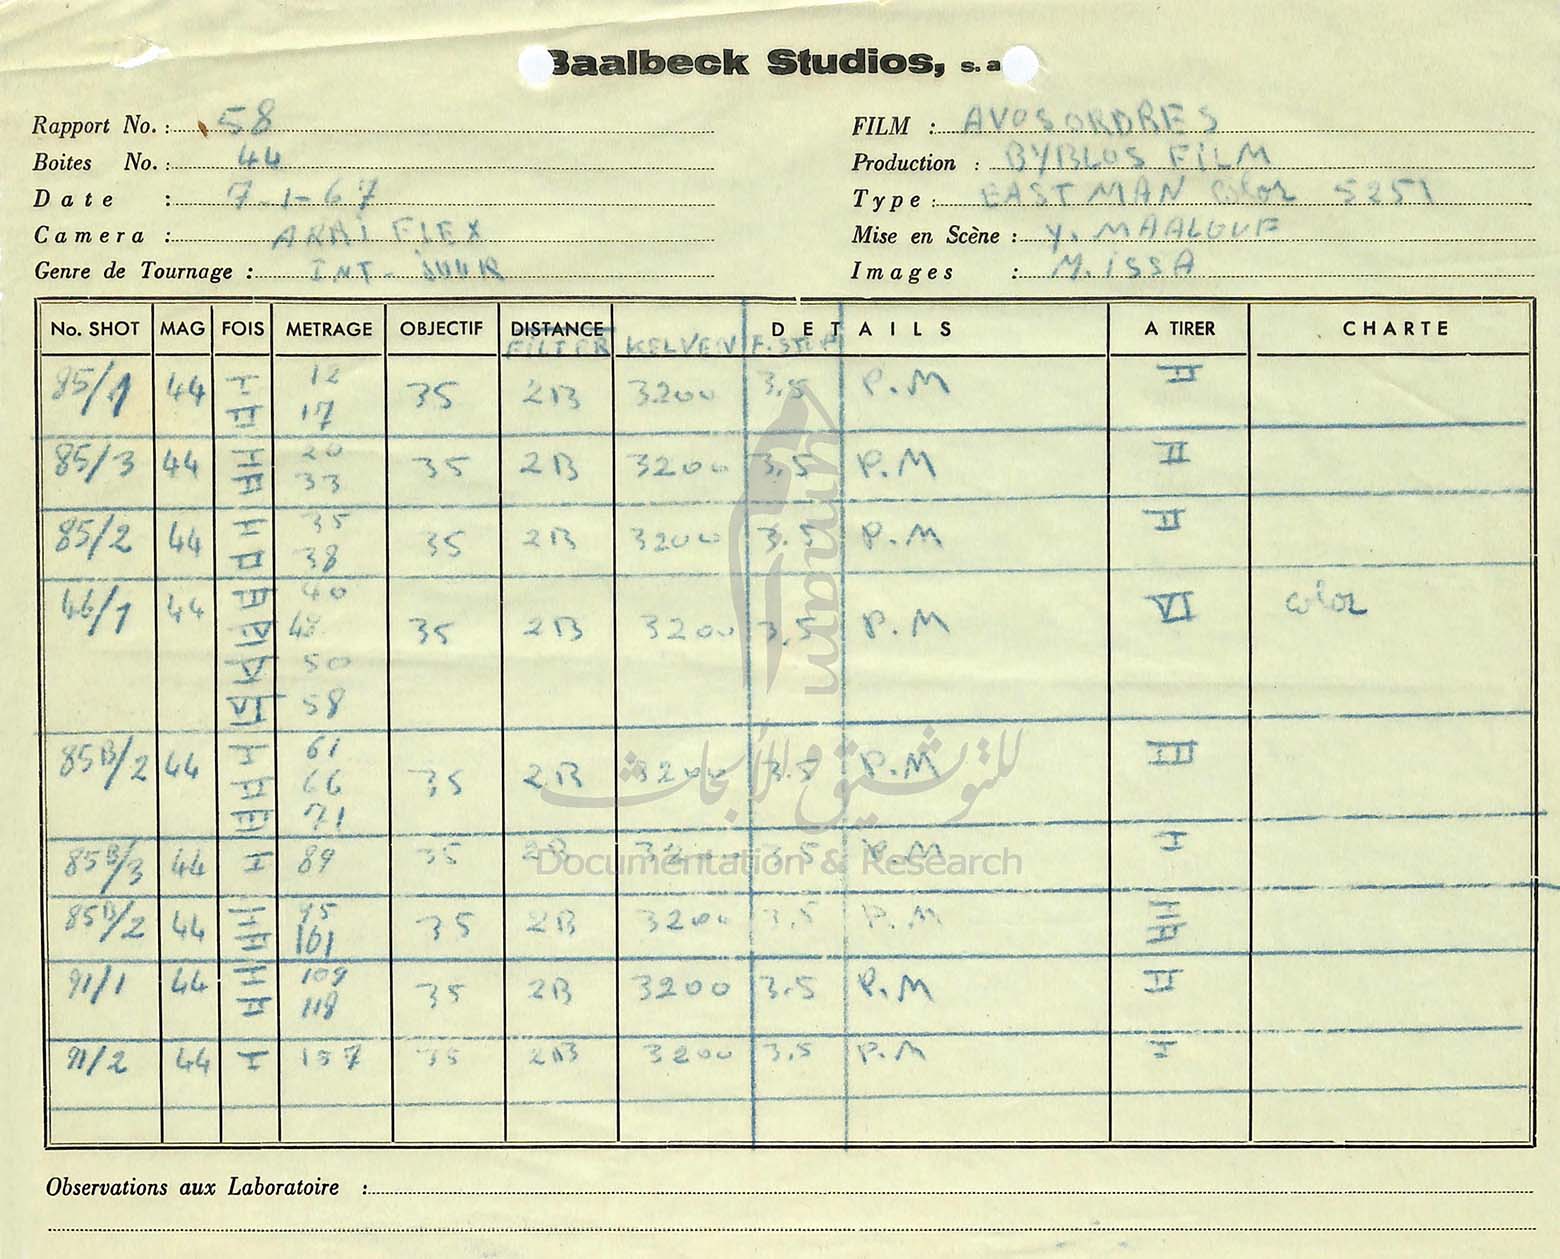 Baalbeck Studios, s. a
Rapport No. : 58
Boites No. : 44
Date : 7-1-67
Camera : ARAI FLEX
Genre de Tournage : INT - JOUR
FILM : AVOS ORDRES
Production : BYBLOS FILM
Type : EASTMAN Color 5251
Mise en Scène : Y. MAALOUF
Images : M. ISSA
No. SHOT MAG FOIS METRAGE OBJECTIF DISTANCE DETAILS A TIRER CHARTE
FILTER KELVEN F. STOP
85/1 44 I 12 35 2B 3200 3.5 P.M II
II 17
85/3 44 I 20 35 2B 3200 3.5 P.M II
II 33
85/2 44 I 35 35 2B 3200 3.5 P.M II
II 38
46/1 44 40 35 2B 3200 3.5 P.M VI color
48
50
VI 58
85B/2 44 I 61 35 2B 3200 3.5 P.M III
II 66
III 71
85B/3 44 I 89 35 2B 3200 3.5 P.M I
85B/2 44 I 95 35 2B 3200 3.5 P.M I
II 101 II
91/1 44 I 109 35 2B 3200 3.5 P.M II
II 118
91/2 44 I 157 35 2B 3200 3.5 P.M I
Observations aux Laboratoire :
umam
للتوثيق والأبحاث
Documentation & Research